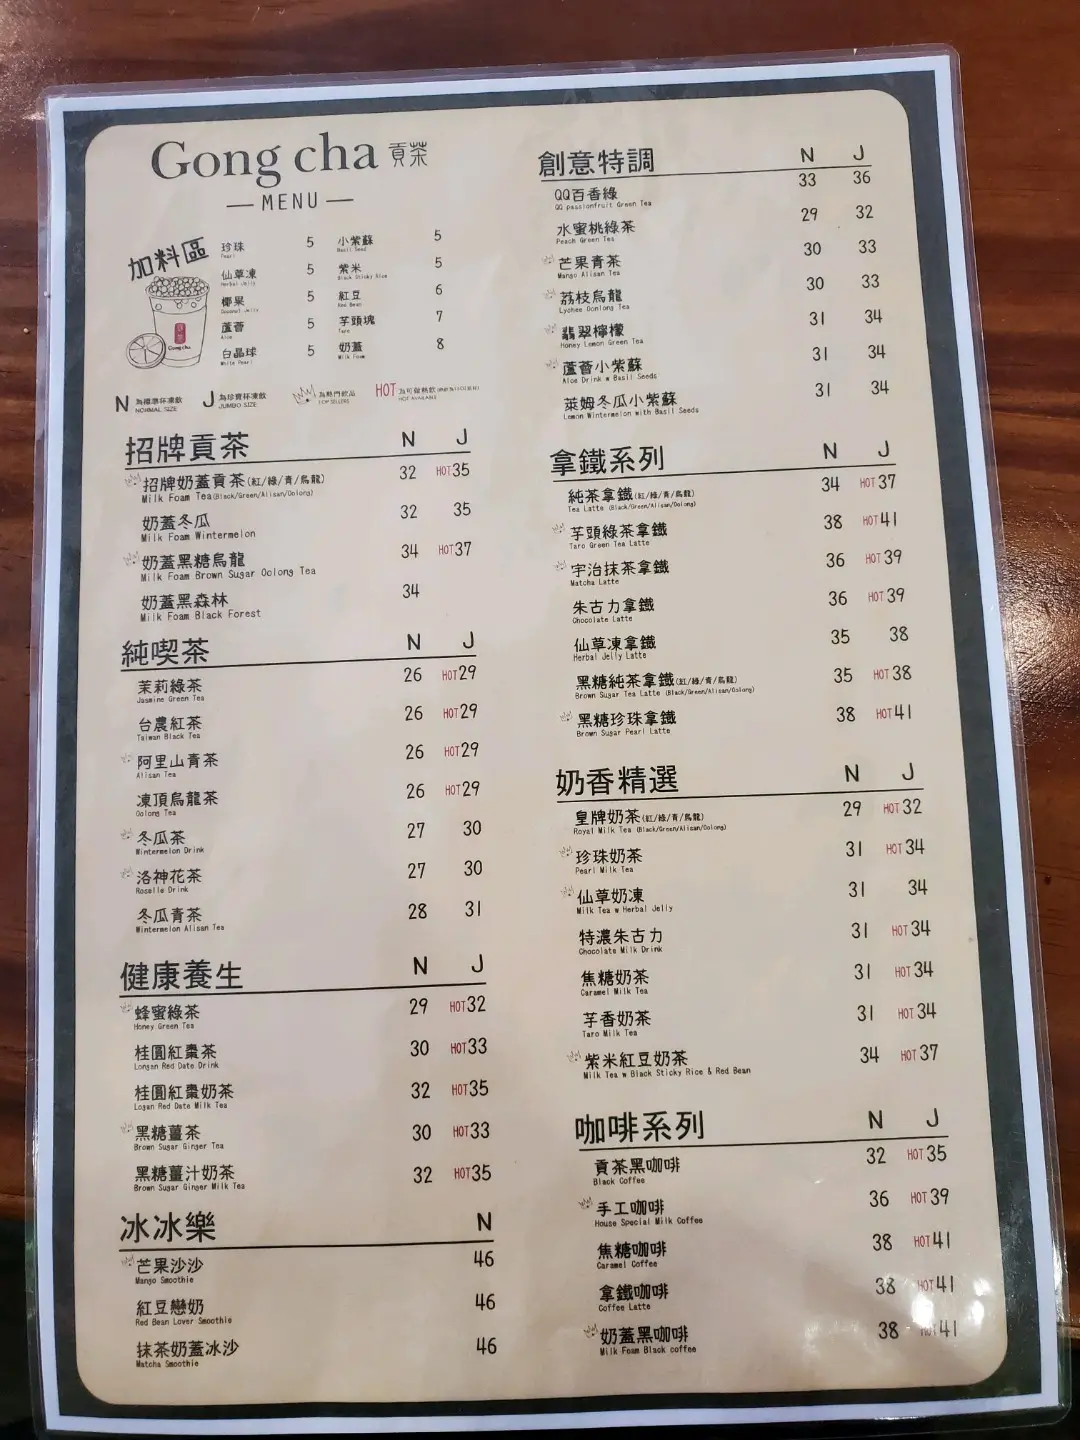 Gong cha 貢茶
MENU
加料區
珍珠 5
Pearl
仙草凍 5
Herbal Jelly
椰果 5
Coconut Jelly
蘆薈 5
Aloe
白晶球 5
White Pearl
小紫蘇 5
Basil Seed
紫米 5
Black Sticky Rice
紅豆 6
Red Bean
芋頭塊 7
Taro
奶蓋 8
Milk Foam
貢茶
Gong cha
N 為標準杯凍飲
NORMAL SIZE
J 為珍寶杯凍飲
JUMBO SIZE
為熱門飲品
TOP SELLERS
HOT 為可做熱飲
HOT AVAILABLE
招牌貢茶 N J
招牌奶蓋貢茶(紅/綠/青/烏龍) 32 HOT35
Milk Foam Tea(Black/Green/Alisan/Oolong)
奶蓋冬瓜 32 35
Milk Foam Wintermelon
奶蓋黑糖烏龍 34 HOT37
Milk Foam Brown Sugar Oolong Tea
奶蓋黑森林 34
Milk Foam Black Forest
純喫茶 N J
茉莉綠茶 26 HOT29
Jasmine Green Tea
台農紅茶 26 HOT29
Taiwan Black Tea
阿里山青茶 26 HOT29
Alisan Tea
凍頂烏龍茶 26 HOT29
Oolong Tea
冬瓜茶 27 30
Wintermelon Drink
洛神花茶 27 30
Roselle Drink
冬瓜青茶 28 31
Wintermelon Alisan Tea
健康養生 N J
蜂蜜綠茶 29 HOT32
Honey Green Tea
桂圓紅棗茶 30 HOT33
Longan Red Date Drink
桂圓紅棗奶茶 32 HOT35
Logan Red Date Milk Tea
黑糖薑茶 30 HOT33
Brown Sugar Ginger Tea
黑糖薑汁奶茶 32 HOT35
Brown Sugar Ginger Milk Tea
冰冰樂 N
芒果沙沙 46
Mango Smoothie
紅豆戀奶 46
Red Bean Lover Smoothie
抹茶奶蓋冰沙 46
Matcha Smoothie
創意特調 N J
QQ百香綠 33 36
QQ passionfruit Green Tea
水蜜桃綠茶 29 32
Peach Green Tea
芒果青茶 30 33
Mango Alisan Tea
荔枝烏龍 30 33
Lychee Oonlong Tea
翡翠檸檬 31 34
Honey Lemon Green Tea
蘆薈小紫蘇 31 34
Aloe Drink w Basil Seeds
萊姆冬瓜小紫蘇 31 34
Lemon Wintermelon with Basil Seeds
拿鐵系列 N J
純茶拿鐵(紅/綠/青/烏龍) 34 HOT37
Tea Latte (Black/Green/Alisan/Oolong)
芋頭綠茶拿鐵 38 HOT41
Taro Green Tea Latte
宇治抹茶拿鐵 36 HOT39
Matcha Latte
朱古力拿鐵 36 HOT39
Chocolate Latte
仙草凍拿鐵 35 38
Herbal Jelly Latte
黑糖純茶拿鐵(紅/綠/青/烏龍) 35 HOT38
Brown Sugar Tea Latte (Black/Green/Alisan/Oolong)
黑糖珍珠拿鐵 38 HOT41
Brown Sugar Pearl Latte
奶香精選 N J
皇牌奶茶(紅/綠/青/烏龍) 29 HOT32
Royal Milk Tea (Black/Green/Alisan/Oolong)
珍珠奶茶 31 HOT34
Pearl Milk Tea
仙草奶凍 31 34
Milk Tea w Herbal Jelly
特濃朱古力 31 HOT34
Chocolate Milk Drink
焦糖奶茶 31 HOT34
Caramel Milk Tea
芋香奶茶 31 HOT34
Taro Milk Tea
紫米紅豆奶茶 34 HOT37
Milk Tea w Black Sticky Rice & Red Bean
咖啡系列 N J
貢茶黑咖啡 32 HOT35
Black Coffee
手工咖啡 36 HOT39
House Special Milk Coffee
焦糖咖啡 38 HOT41
Caramel Coffee
拿鐵咖啡 38 HOT41
Coffee Latte
奶蓋黑咖啡 38 HOT41
Milk Foam Black coffee